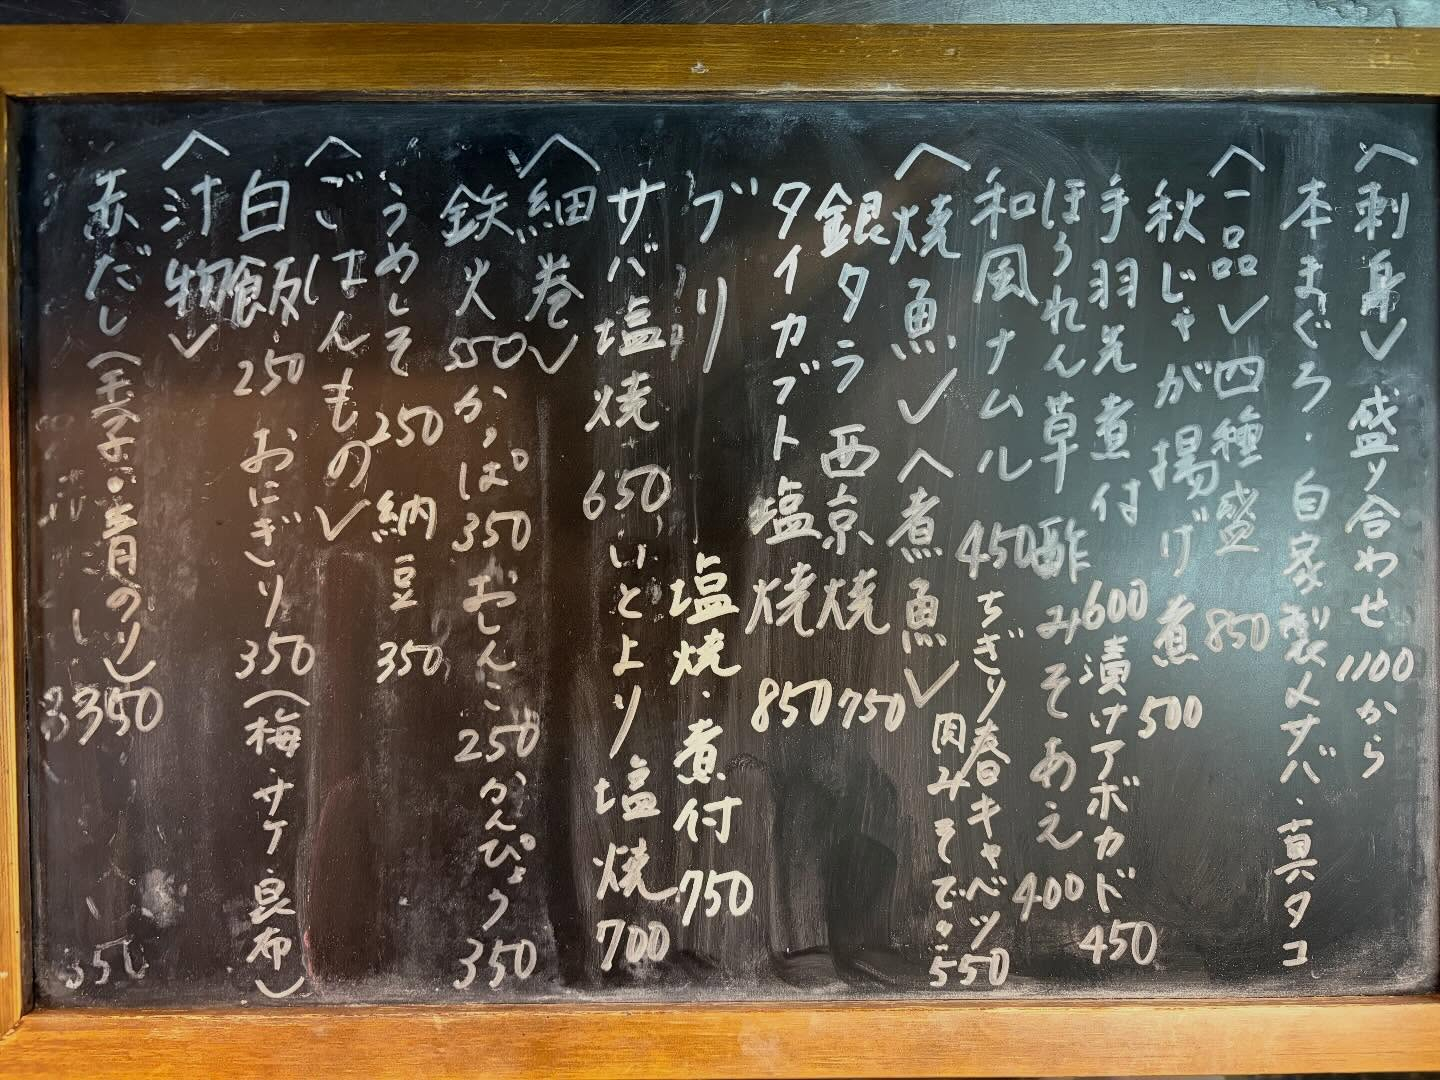 〈刺身〉 盛り合わせ 1100から
本まぐろ・自家製〆サバ・真タコ
〈一品〉 四種盛 850
秋じゃが揚げ煮 500
手羽先煮付 600 漬けアボカド 450
ほうれん草酢みそあえ 400
和風ナムル 450 ちぎり春キャベツ 肉みそで。 550
〈焼魚〉〈煮魚〉
銀タラ西京焼 750
タイカブト塩焼 850
ブリ 塩焼・煮付 750
サバ塩焼 650 いとより塩焼 700
〈細巻〉
鉄火 550 かっぱ 350 おしんこ 250 かんぴょう 350
うめしそ 250 納豆 350
〈ごはんもの〉
白飯 250 おにぎり 350 (梅・サケ・昆布)
〈汁物〉
赤だし (玉子・青のり) 350
350